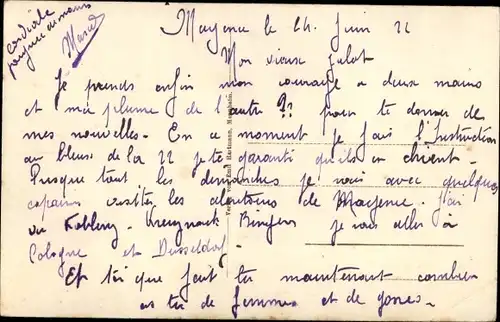 cordiale
poignée de mains
Marcel
Mayence le 24 Juin 22
Mon vieux Julot
Je prends enfin mon courage a deux mains
et ma plume de l'autre ?? pour te donner de
mes nouvelles. En ce moment je fais l'Instruction
au bleus de la 22 je te garanti qu'ils en chient.
Presque tout les dimanches je vais avec quelques
copains visiter les alentours de Mayence. J'ai
vu Koblenz Kreuznack Bingen je vais aller à
Cologne et Dusseldorf.
Et toi que fait tu maintenant combien
as tu de femmes et de gosses.
Hartmann,